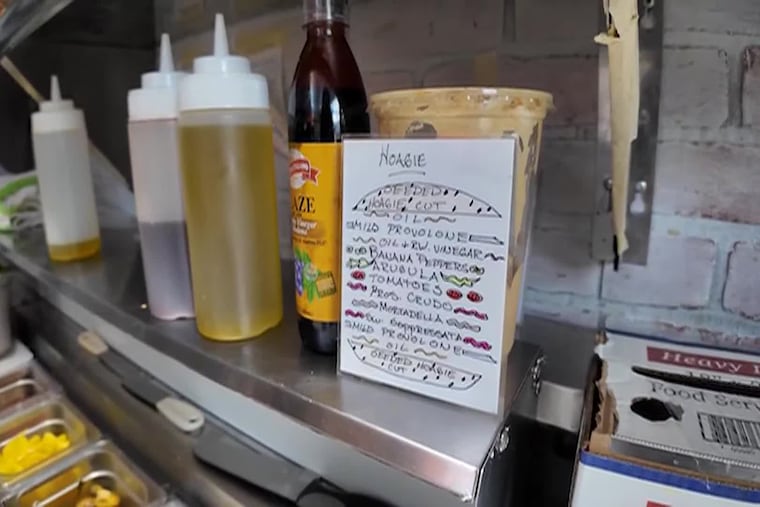 AZE
HOAGIE
SEEDED
HOAGIE CUT
OIL
MILD PROVOLONE
OIL & RW. VINEGAR
BANANA PEPPERS
ARUGULA
TOMATOES
PROS. CRUDO
MORTADELLA
SW. SOPPRESSATA
MILD PROVOLONE
OIL
SEEDED HOAGIE
CUT
Heavy
Food Serv